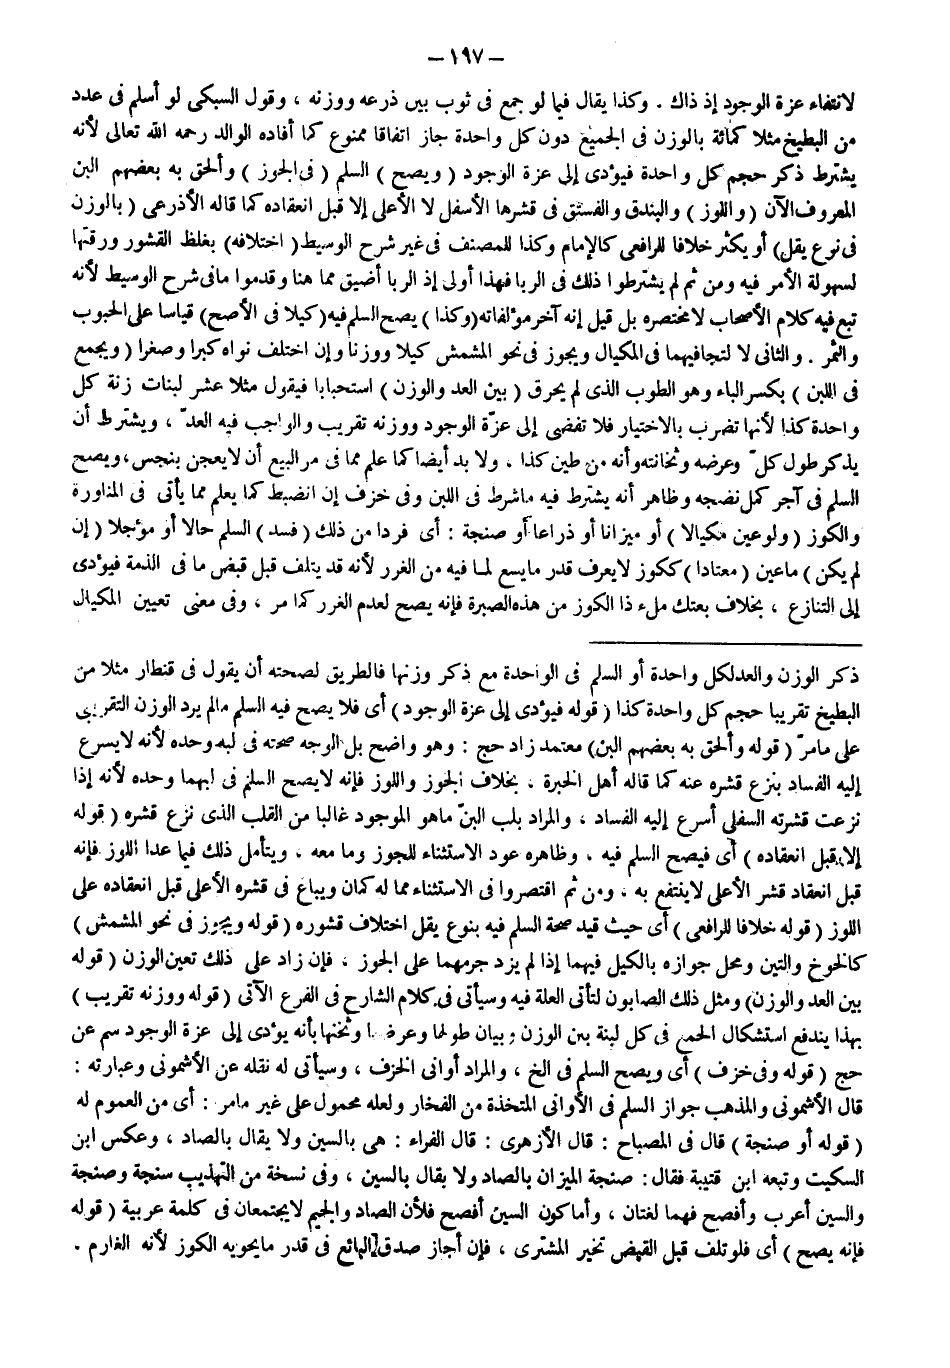 – ١٩٧ –
لانتفاء عزة الوجود إذ ذاك . وكذا يقال فيما لو جمع فى ثوب بين ذرعه ووزنه ، وقول السبكى لو أسلم فى عدد
من البطيخ مثلا كمائة بالوزن فى الجميع دون كل واحدة جاز اتفاقا ممنوع كما أفاده الوالد رحمه الله تعالى لأنه
يشترط ذكر حجم كل واحدة فيؤدى إلى عزة الوجود ( ويصح ) السلم ( فى الجوز ) وألحق به بعضهم البن
المعروف الآن ( واللوز ) والبندق والفستق فى قشرها الأسفل لا الأعلى إلا قبل انعقاده كما قاله الأذرعى ( بالوزن
فى نوع يقل) أو يكثر خلافا للرافعى كالإمام وكذا للمصنف فى غير شرح الوسيط ( اختلافه) بغلظ القشور ورقتها
لسهولة الأمر فيه ومن ثم لم يشترطوا ذلك فى الربا فهذا أولى إذ الربا أضيق مما هنا وقدموا مافى شرح الوسيط لأنه
تبع فيه كلام الأصحاب لامختصره بل قيل إنه آخر مؤلفاته (وكذا ) يصح السلم فيه (كيلا فى الأصح) قياسا على الحبوب
والتمر . والثانى لا لتجافيهما فى المكيال ويجوز فى نحو المشمش كيلا ووزنا وإن اختلف نواه كبرا وصغرا ( ويجمع
فى اللبن ) بكسر الباء وهو الطوب الذى لم يحرق ( بين العد والوزن ) استحبابا فيقول مثلا عشر لبنات زنة كل
واحدة كذا لأنها تضرب بالاختيار فلا تفضى إلى عزّة الوجود ووزنه تقريب والواجب فيه العدّ ، ويشترط أن
يذكر طول كلّ وعرضه وثخانته وأنه من طين كذا . ولا بد أيضا كما علم مما فى مر البيع أن لايعجن بنجس ، ويصح
السلم فى آجر كمل نضجه وظاهر أنه يشترط فيه ماشرط فى اللبن وفى خزف إن انضبط كما يعلم مما يأتى فى المناورة
والكوز ( ولوعين مكيالا ) أو ميزانا أو ذراعا أو صنجة : أى فردا من ذلك ( فسد ) السلم حالا أو مؤجلا ( إن
لم يكن ) ماعين ( معتادا ) ككوز لايعرف قدر مايسع لما فيه من الغرر لأنه قد يتلف قبل قبض ما فى الذمة فيؤدى
إلى التنازع ، بخلاف بعتك ملء ذا الكوز من هذه الصبرة فإنه يصح لعدم الغرر كما مر ، وفى معنى تعيين المكيال
ذكر الوزن والعد لكل واحدة أو السلم فى الواحدة مع ذكر وزنها فالطريق لصحته أن يقول فى قنطار مثلا من
البطيخ تقريبا حجم كل واحدة كذا ( قوله فيؤدى إلى عزة الوجود ) أى فلا يصح فيه السلم مالم يرد الوزن التقريبى
على مامرّ ( قوله وألحق به بعضهم البن) معتمد زاد حج : وهو واضح بل الوجه صحته فى لبه وحده لأنه لايسرع
إليه الفساد بنزع قشره عنه كما قاله أهل الخبرة ، بخلاف الجوز واللوز فإنه لايصح السلم فى لبهما وحده لأنه إذا
نزعت قشرته السفلى أسرع إليه الفساد ، والمراد بلب البنّ ماهو الموجود غالبا من القلب الذى نزع قشره ( قوله
إلا قبل انعقاده ) أى فيصح السلم فيه ، وظاهره عود الاستثناء للجوز وما معه ، ويتأمل ذلك فيما عدا اللوز فإنه
قبل انعقاد قشر الأعلى لاينتفع به ، ومن ثم اقتصروا فى الاستثناء مما له كمان ويباع فى قشره الأعلى قبل انعقاده على
اللوز ( قوله خلافا للرافعى ) أى حيث قيد صحة السلم فيه بنوع يقل اختلاف قشوره ( قوله ويجوز فى نحو المشمش )
كالخوخ والتين ومحل جوازه بالكيل فيهما إذا لم يزد جرمهما على الجوز ، فإن زاد على ذلك تعين الوزن ( قوله
بين العد والوزن) ومثل ذلك الصابون لتأتى العلة فيه وسيأتى فى كلام الشارح فى الفرع الآتى ( قوله ووزنه تقريب )
بهذا يندفع استشكال الجمع فى كل لبنة بين الوزن وبيان طولها وعرضها وثخنها بأنه يؤدى إلى عزة الوجود سم عن
حج ( قوله وفى خزف ) أى ويصح السلم فى الخ ، والمراد أوانى الخزف ، وسيأتى له نقله عن الأشمونى وعبارته :
قال الأشمونى والمذهب جواز السلم فى الأوانى المتخذة من الفخار ولعله محمول على غير مامر : أى من العموم له
( قوله أو صنجة ) قال فى المصباح : قال الأزهرى : قال الفراء : هى بالسين ولا يقال بالصاد ، وعكس ابن
السكيت وتبعه ابن قتيبة فقال : صنجة الميزان بالصاد ولا يقال بالسين ، وفى نسخة من التهذيب سنجة وصنجة
والسين أعرب وأفصح فهما لغتان ، وأما كون السين أفصح فلأن الصاد والجيم لايجتمعان فى كلمة عربية ( قوله
فإنه يصح ) أى فلو تلف قبل القبض تخير المشترى ، فإن أجاز صدق البائع فى قدر مايحويه الكوز لأنه الغارم .